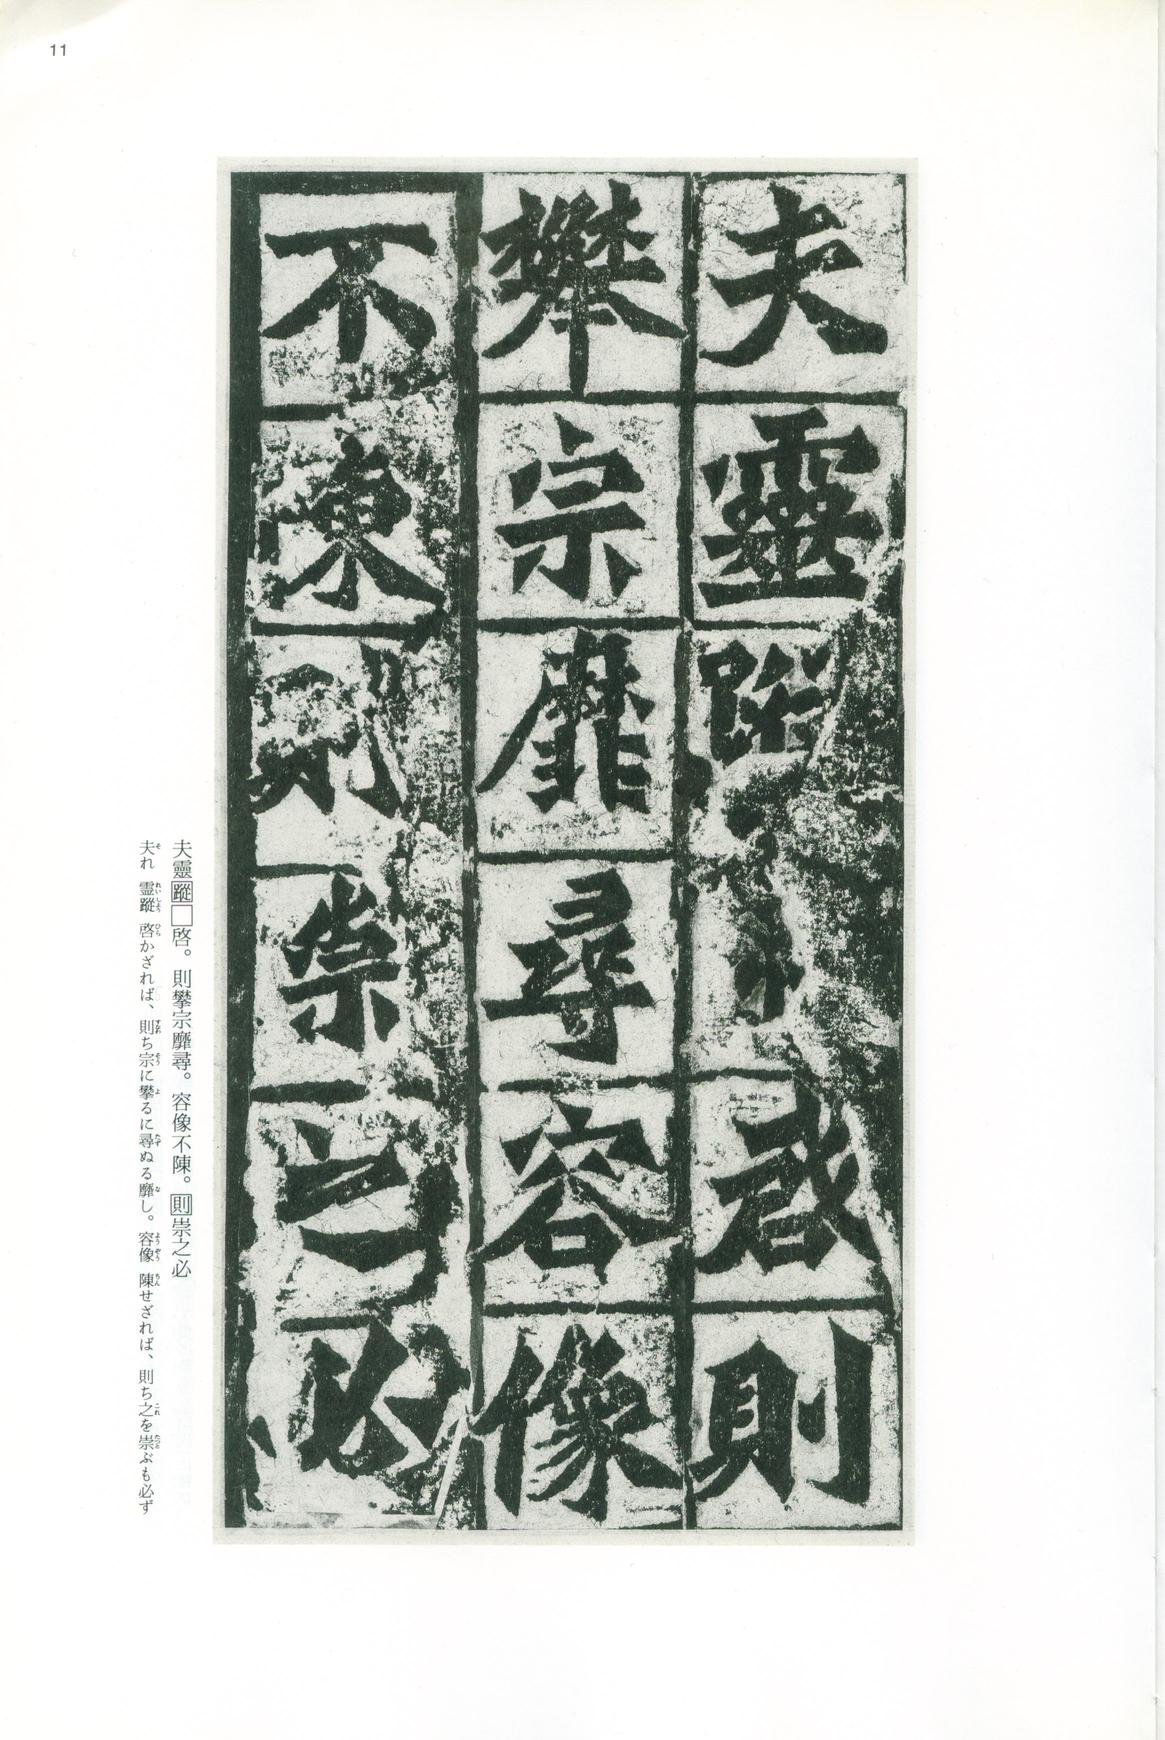 11
夫靈蹤□啓則
攀宗靡尋容像
不陳則崇之必
夫靈蹤□啓。則攀宗靡尋。容像不陳。則崇之必
夫れ 霊蹤 啓かざれば、則ち宗に攀るに尋ぬる靡し。容像 陳せざれば、則ち之を崇ぶも必ず